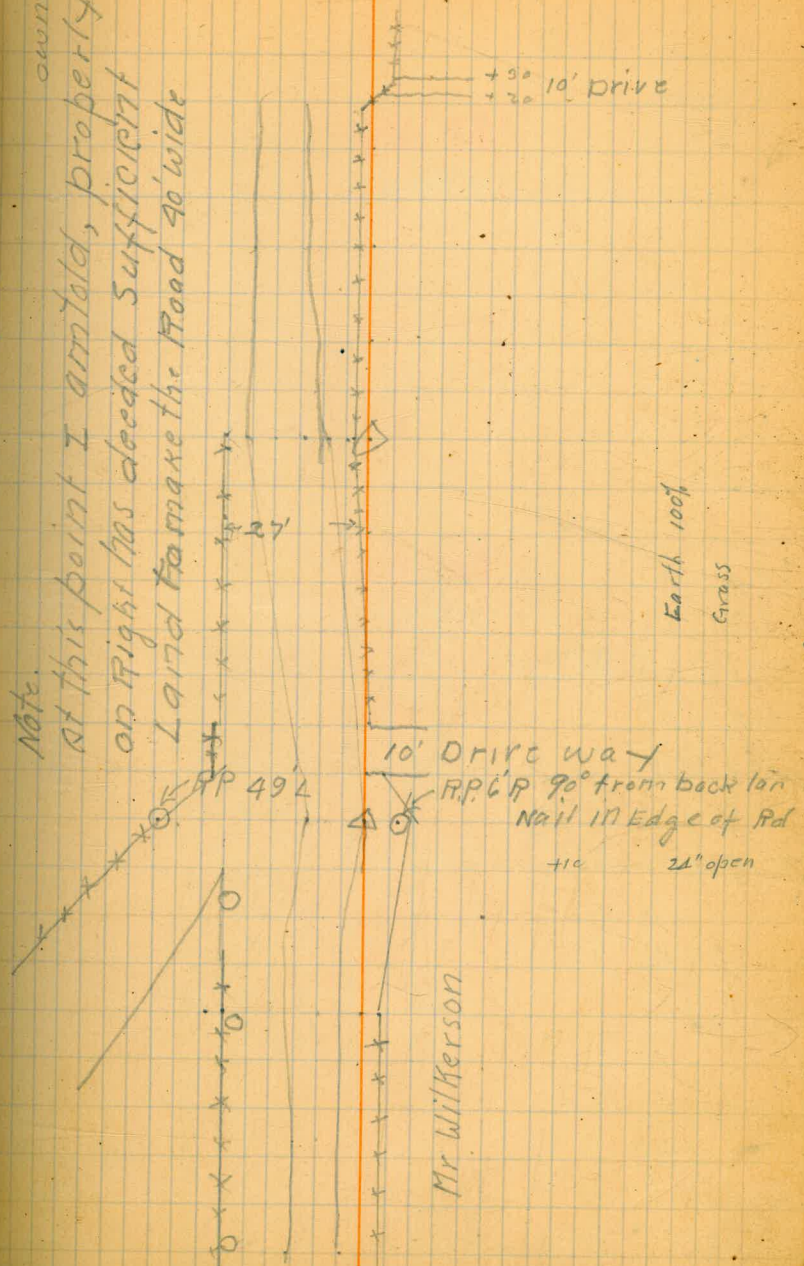 Note.
At this point I am told, property own
on Right has deeded Sufficient
Land to make the Road 40' wide
+30
+20
10' Drive
27'
Earth 100%
Grass
10' Drive way
RP 49'L
R.P. 6'R 90° from back
Nail in Edge of Rd
+10 24" open
Mr Wilkerson